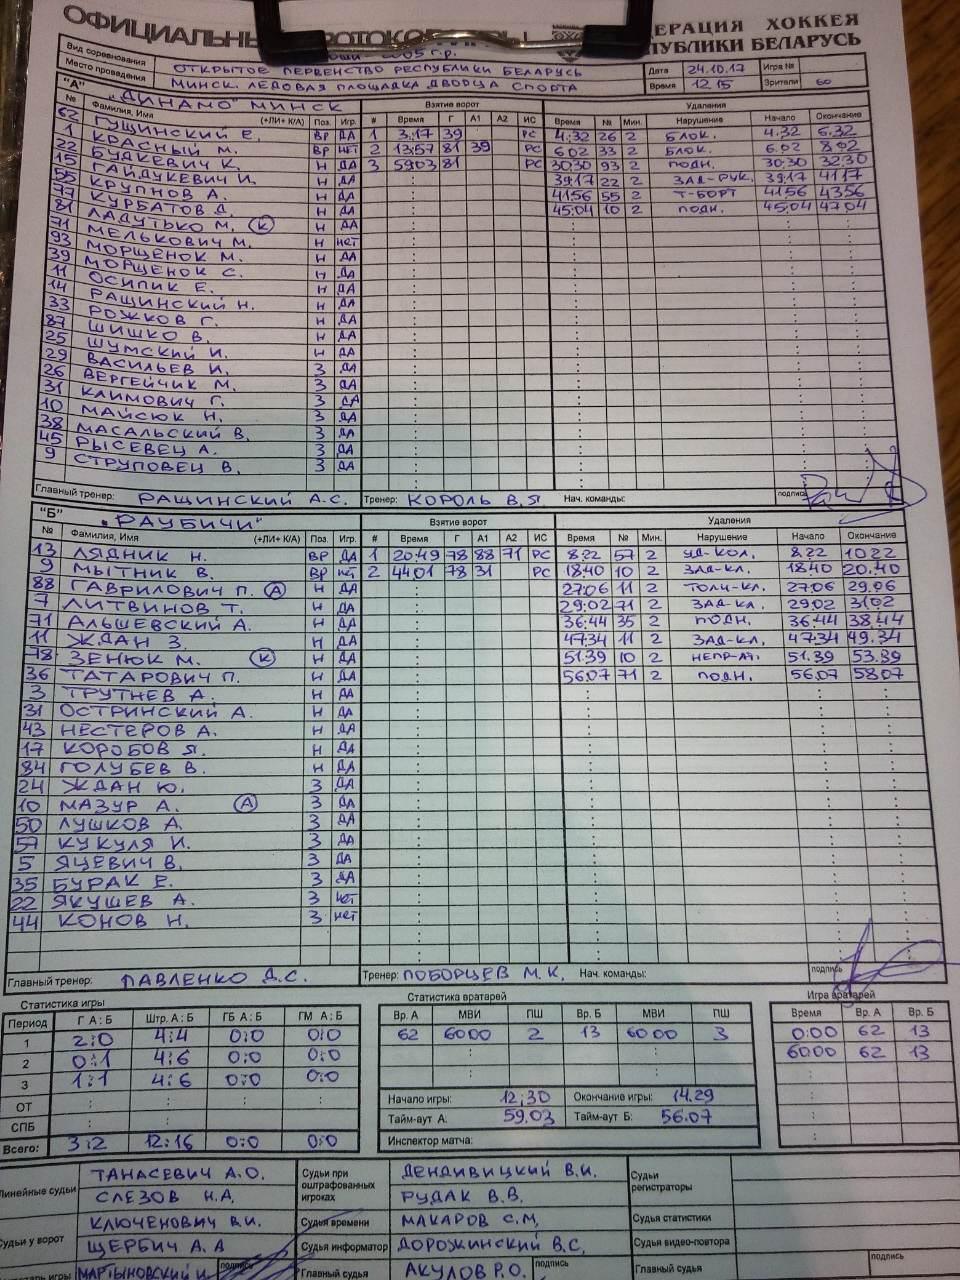 ОФИЦИАЛЬНЫ РОТОКО
ДЕРАЦИЯ ХОККЕЯ
ПУБЛИКИ БЕЛАРУСЬ
Вид соревнования ОТКРЫТОЕ ПЕРВЕНСТВО РЕСПУБЛИКИ БЕЛАРУСЬ Дата 24.10.17 Игра №
Место проведения МИНСК. ЛЕДОВАЯ ПЛОЩАДКА ДВОРЦА СПОРТА Время 12 15 Зрители 60
"А" "ДИНАМО" МИНСК Взятие ворот Удаления
№ Фамилия, Имя (+ЛИ+ К/А) Поз. Игр. # Время Г А1 А2 ИС Время № Мин. Нарушение Начало Окончание
62 ГУЩИНСКИЙ Е. ВР ДА 1 3.17 39 РС 4:32 26 2 БЛОК. 4.32 6.32
1 КРАСНЫЙ М. ВР НЕТ 2 13:57 81 39 РС 6.02 33 2 БЛОК. 6.02 8.02
22 БУДКЕВИЧ К. Н ДА 3 59.03 81 РС 30:30 93 2 ПОДН. 30:30 32:30
15 ГАЙДУКЕВИЧ И. Н ДА 39.17 22 2 ЗАД-РУК. 39.17 41.17
55 КРУПНОВ А. Н ДА 41:56 55 2 Т-БОРТ 41:56 43:56
77 КУРБАТОВ Д. Н ДА 45:04 10 2 ПОДН. 45:04 47.04
81 ЛАДУТЬКО М. (К) Н ДА
71 МЕЛЬКОВИЧ М. Н НЕТ
93 МОРЩЕНОК М. Н ДА
39 МОРЩЕНОК С. Н ДА
11 ОСИПИК Е. Н ДА
14 РАЩИНСКИЙ Н. Н ДА
33 РОЖКОВ Г. Н ДА
87 ШИШКО В. Н ДА
25 ШУМСКИЙ И. Н ДА
29 ВАСИЛЬЕВ И. З ДА
26 ВЕРГЕЙЧИК М. З ДА
31 КЛИМОВИЧ Г. З ДА
10 МАЙСЮК Н. З ДА
38 МАСАЛЬСКИЙ В. З ДА
45 РЫСЕВЕЦ А. З ДА
9 СТРУПОВЕЦ В. З ДА
Главный тренер: РАЩИНСКИЙ А.С. Тренер: КОРОЛЬ В.Я. Нач. команды: подпись
"Б" "РАУБИЧИ" Взятие ворот Удаления
№ Фамилия, Имя (+ЛИ+ К/А) Поз. Игр. # Время Г А1 А2 ИС Время № Мин. Нарушение Начало Окончание
13 ЛЯДНИК Н. ВР ДА 1 20:49 78 88 71 РС 8:22 57 2 УД-КОЛ. 8.22 10.22
9 МЫТНИК В. ВР НЕТ 2 44.01 78 31 РС 18:40 10 2 ЗАД-КЛ. 18.40 20.40
88 ГАВРИЛОВИЧ П. (А) Н ДА 27:06 11 2 ТОЛЧ-КЛ. 27:06 29.06
7 ЛИТВИНОВ Т. Н ДА 29:02 71 2 ЗАД-КЛ. 29:02 31:02
71 АЛЬШЕВСКИЙ А. Н ДА 36:44 35 2 ПОДН. 36:44 38.44
11 ЖДАН З. Н ДА 47:34 11 2 ЗАД-КЛ. 47:34 49.34
78 ЗЕНЮК М. (К) Н ДА 51.39 10 2 НЕПР-АТ. 51.39 53.39
36 ТАТАРОВИЧ П. Н ДА 56.07 71 2 ПОДН. 56.07 58.07
3 ТРУТНЕВ А. Н ДА
31 ОСТРИНСКИЙ А. Н ДА
43 НЕСТЕРОВ А. Н ДА
17 КОРОБОВ Я. Н ДА
84 ГОЛУБЕВ В. Н ДА
24 ЖДАН Ю. З ДА
10 МАЗУР А. (А) З ДА
50 ЛУШКОВ А. З ДА
57 КУКУЛЯ И. З ДА
5 ЯЦЕВИЧ В. З ДА
35 БУРАК Е. З ДА
22 ЯКУШЕВ А. З НЕТ
44 КОНОВ Н. З НЕТ
Главный тренер: ПАВЛЕНКО Д.С. Тренер: ПОБОРЦЕВ М.К. Нач. команды: подпись
Статистика игры Статистика вратарей Игра вратарей
Период Г А : Б Штр. А : Б ГБ А : Б ГМ А : Б Вр. А МВИ ПШ Вр. Б МВИ ПШ Время Вр. А Вр. Б
1 2:0 4:4 0:0 0:0 62 60:00 2 13 60:00 3 0:00 62 13
2 0:1 4:6 0:0 0:0 60:00 62 13
3 1:1 4:6 0:0 0:0
ОТ
СПБ
Всего: 3:2 12:16 0:0 0:0
Начало игры: 12:30 Окончание игры: 14.29
Тайм-аут А: 59.03 Тайм-аут Б: 56.07
Инспектор матча:
Линейные судьи ТАНАСЕВИЧ А.О. Судьи при оштрафованных игроках ДЕНДИВИЦКИЙ В.И. Судьи регистраторы
СЛЕЗОВ Н.А. РУДАК В.В.
Судьи у ворот КЛЮЧЕНОВИЧ В.И. Судья времени МАКАРОВ С.М. Судья статистики
ЩЕРБИЧ А.А Судья информатор ДОРОЖИНСКИЙ В.С. Судья видео-повтора
тарь игры МАРТЫНОВСКИЙ И. подпись Главный судья АКУЛОВ Р.О. подпись Главный судья подпись